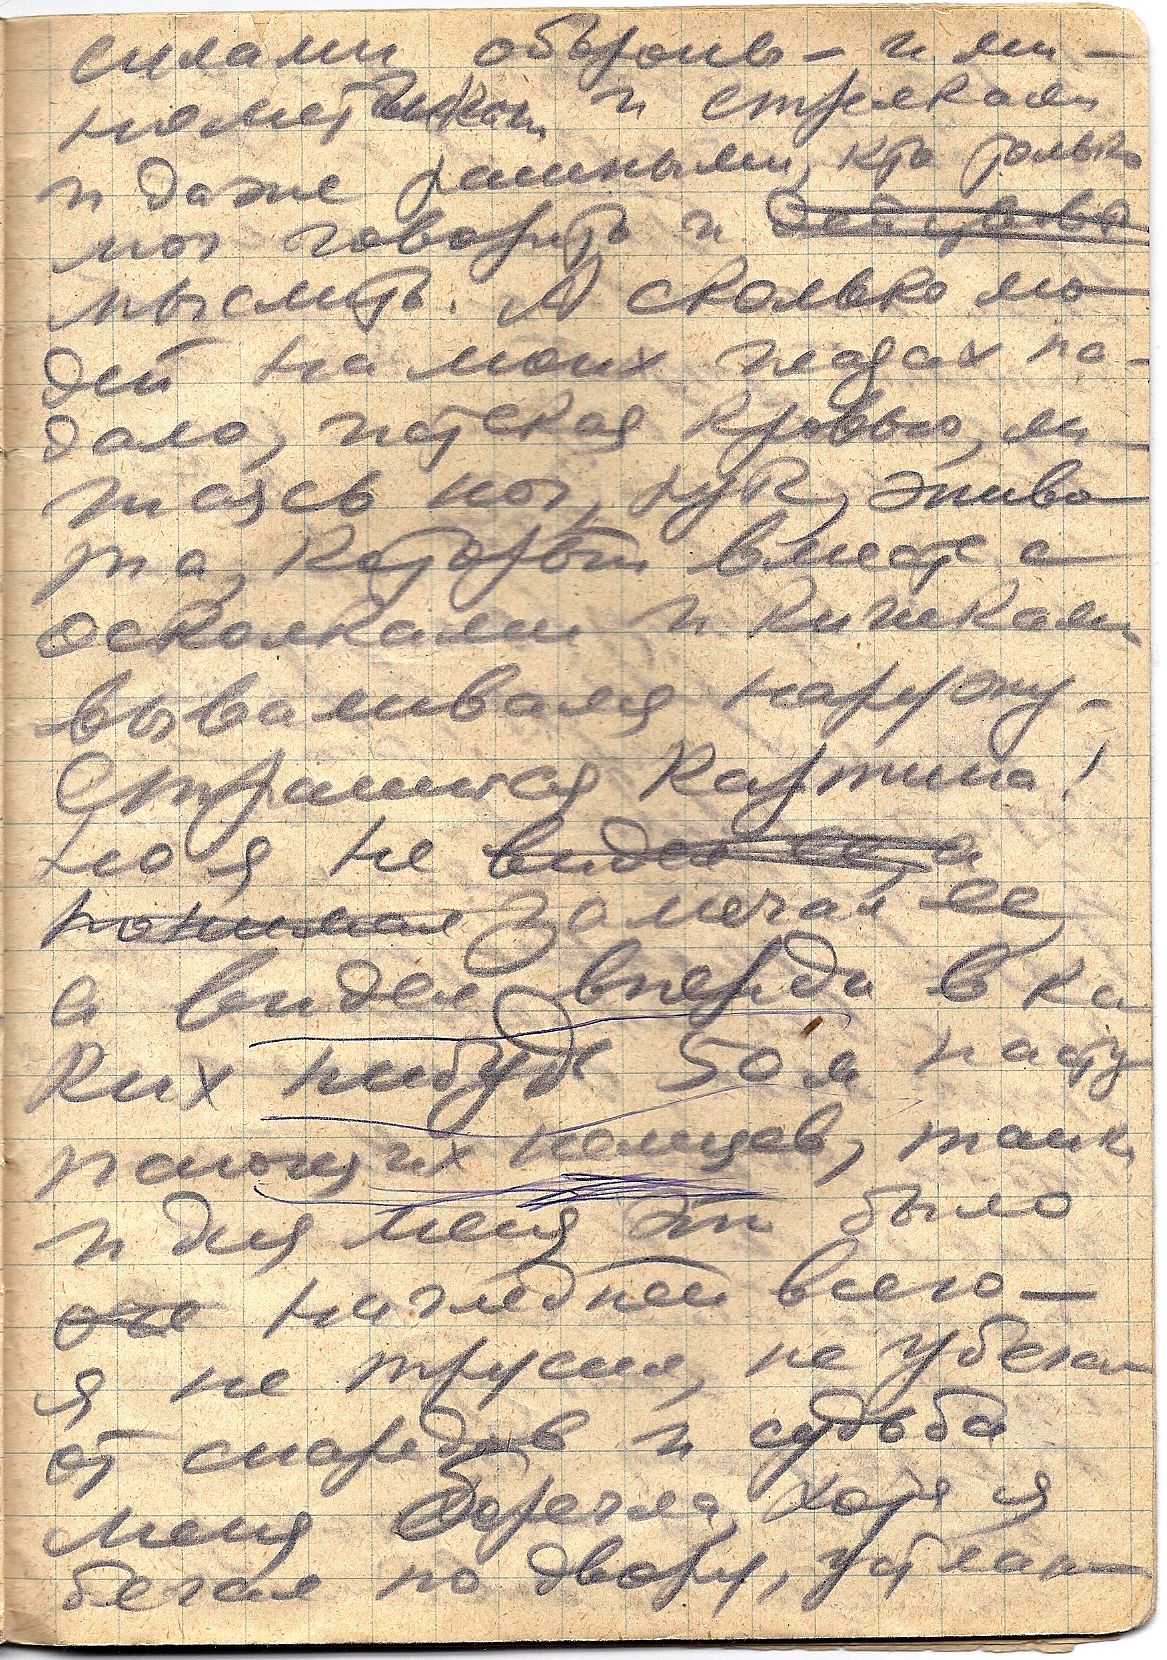 силами обороны — и ми-
нометчиками и стрелками
и даже ранеными, кто только
мог говорить и действова
мыслить. А сколько лю-
дей на моих глазах па-
дало, истекая кровью, ли
шаясь ног, рук, живо-
та, который вместе с
осколками и кишками
вываливался наружу.
Страшная картина!
Но я не видел ее и
понимал замечал ее,
а видел впереди в ка
ких нибудь 50 м насту
пающих немцев, танки
и для меня это было
наглядней всего —
я не трусил, не убегал
от снарядов и судьба
меня берегла, хотя я
бегал по двору, устлан-